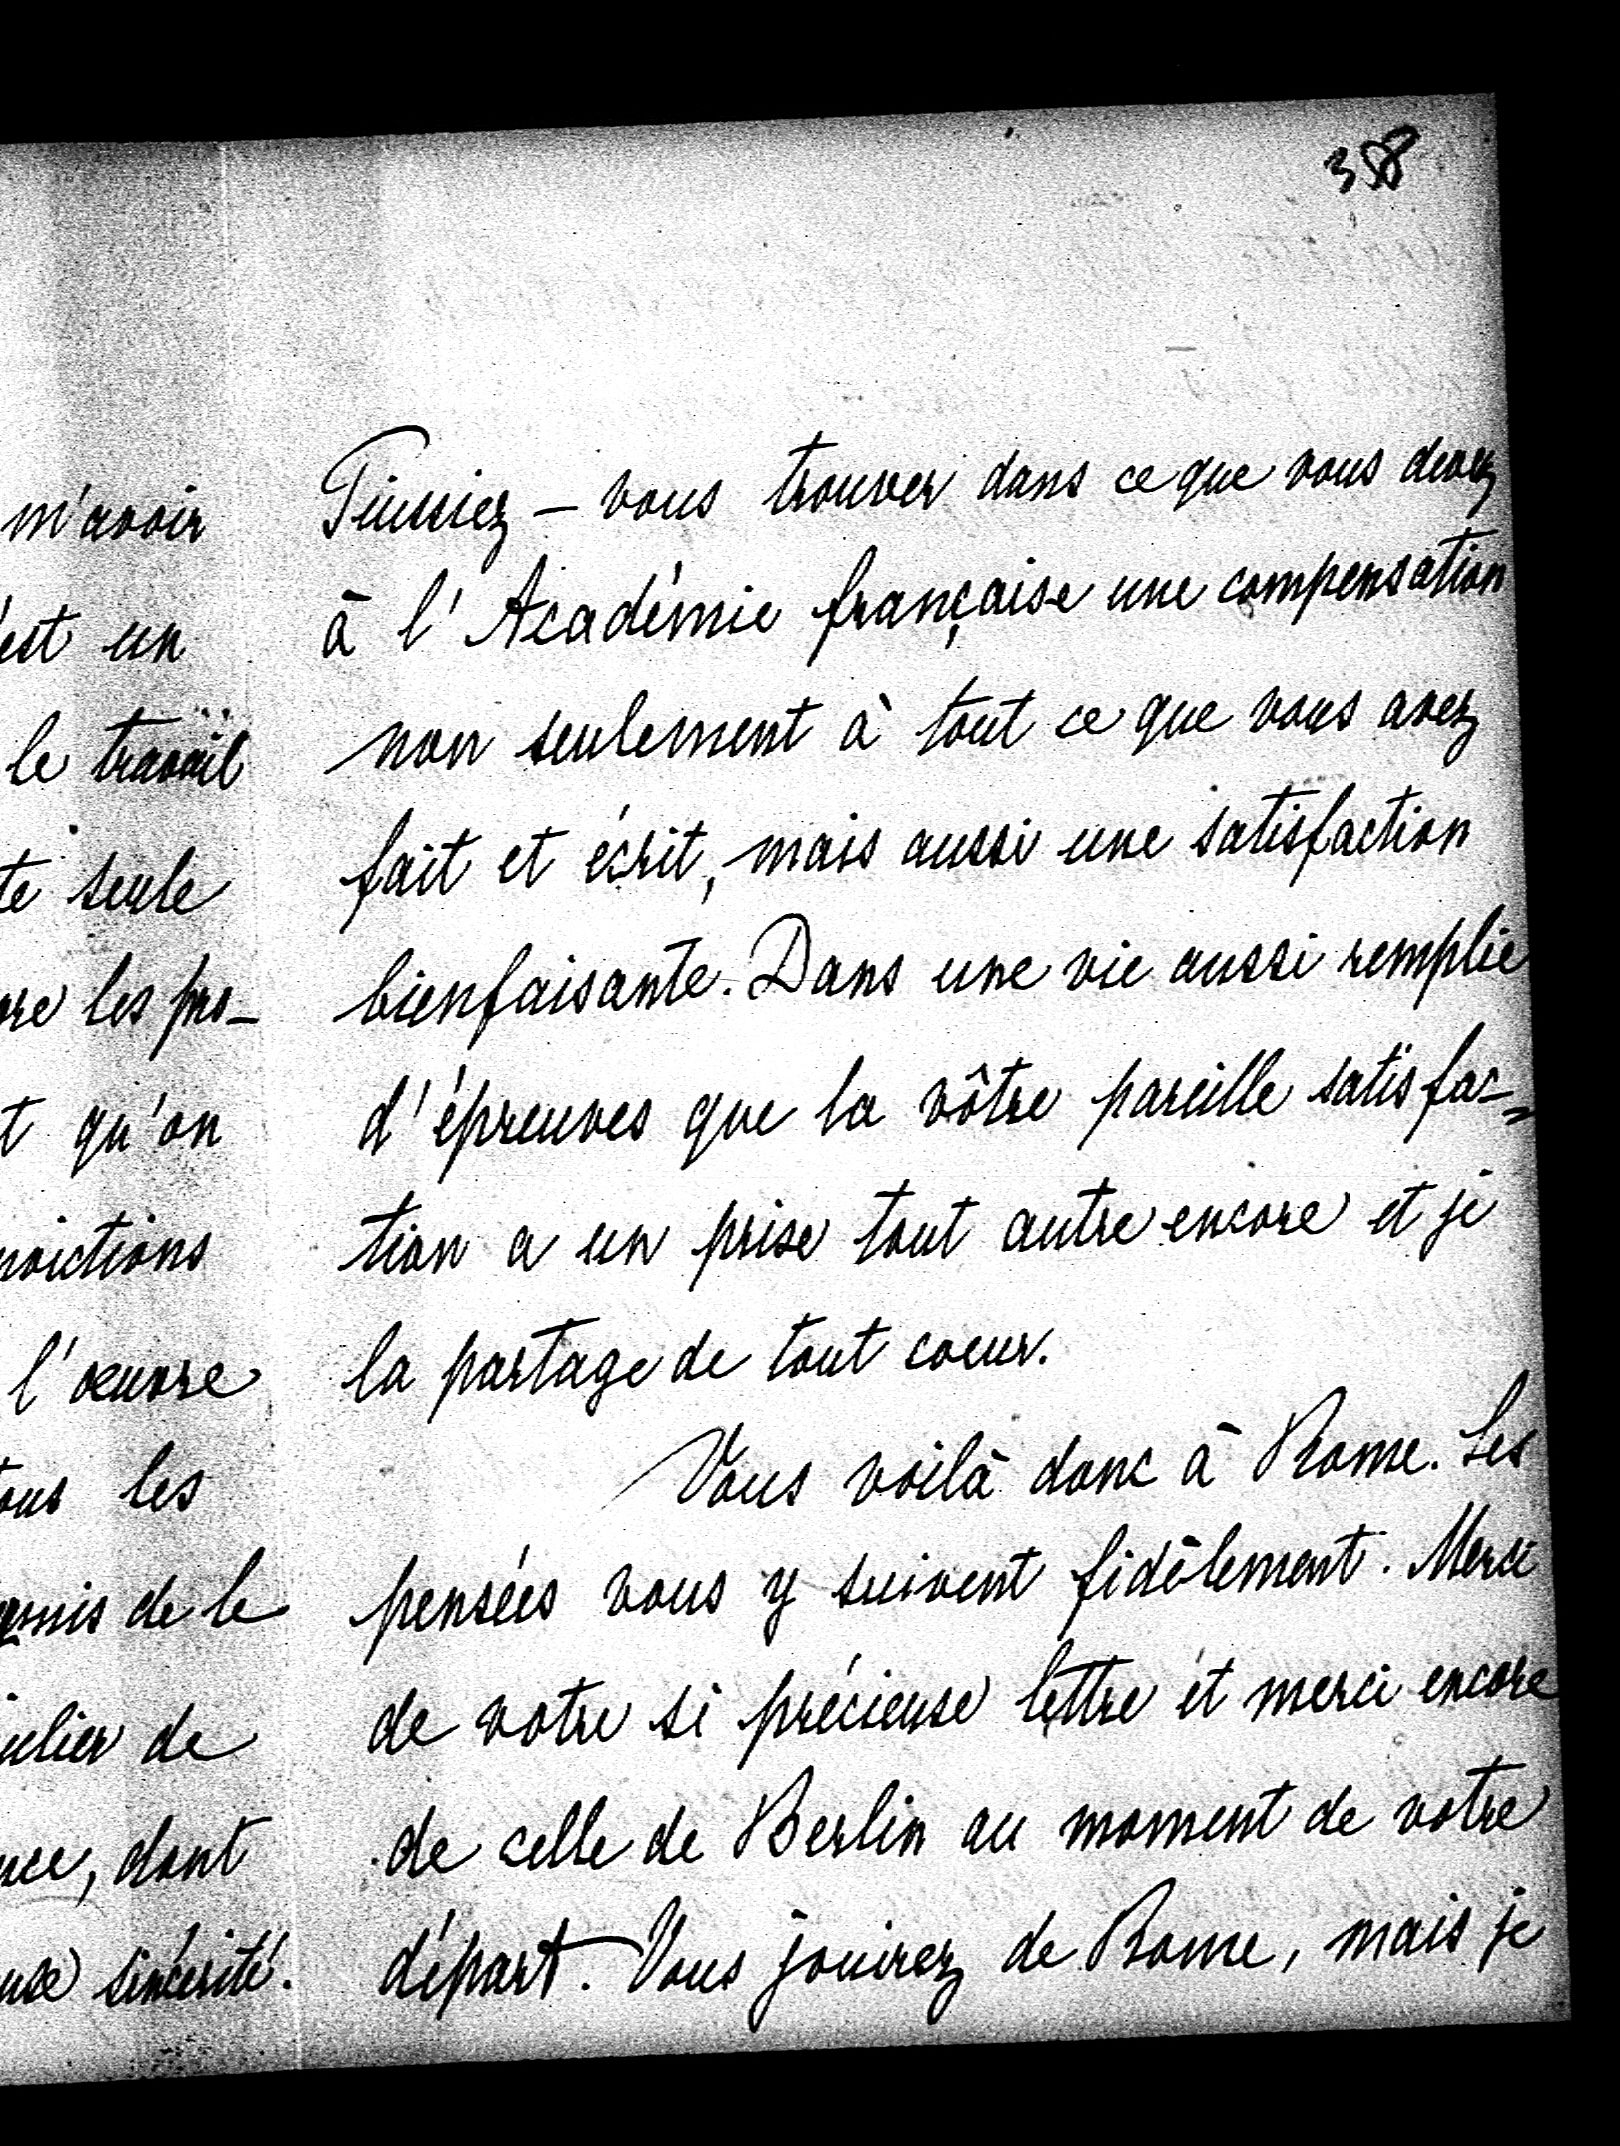 358
m'avoir
'est un
le travail
te seule
les pro-
t qu'on
l'œuvre
les
amis de le
de
, dont
sincérité.
Puissiez-vous trouver dans ce que vous devez
à l'Académie française une compensation
non seulement à tout ce que vous avez
fait et écrit, mais aussi une satisfaction
bienfaisante. Dans une vie aussi remplie
d'épreuves que la vôtre pareille satisfac-
tion a un prise tout autre encore et je
la partage de tout coeur.
Vous voilà donc à Rome. Les
pensées vous y suivent fidèlement. Merci
de votre si précieuse lettre et merci encore
de celle de Berlin au moment de votre
départ. Vous jouirez de Rome, mais je